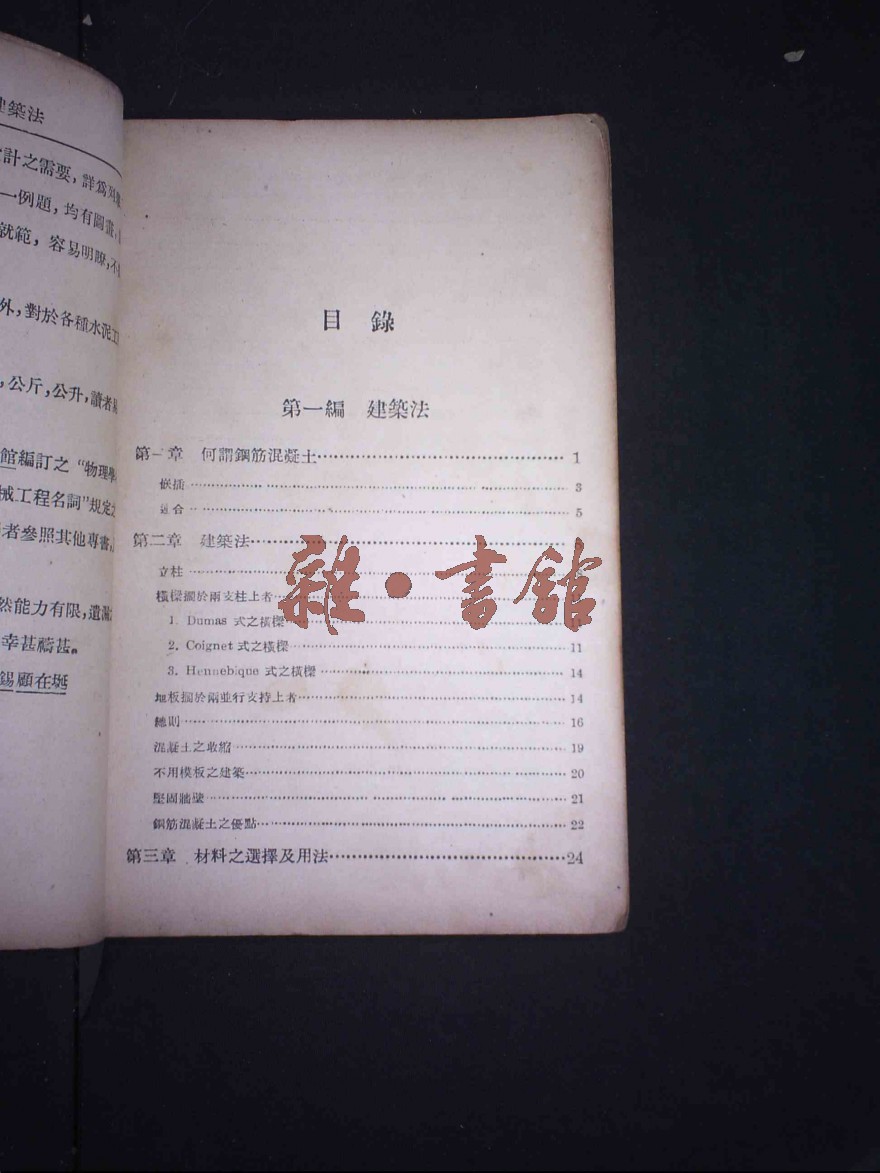 建築法
計之需要，詳爲
一例題，均有圖畫，
就範，容易明瞭，不
外，對於各種水泥工
，公斤，公升，讀者
館編訂之“物理學
械工程名詞”規定之
者參照其他專書，
然能力有限，遺漏
幸甚禱甚。
錫顧在埏
目錄
第一編 建築法
第一章 何謂鋼筋混凝土 1
嵌插 3
適合 5
第二章 建築法
立柱
橫樑擱於兩支柱上者
1. Dumas 式之橫樑
2. Coignet 式之橫樑 11
3. Hennebique 式之橫樑 14
地板擱於兩並行支持上者 14
總則 16
混凝土之收縮 19
不用模板之建築 20
堅固牆壁 21
鋼筋混凝土之優點 22
第三章 材料之選擇及用法 24
雜·書館